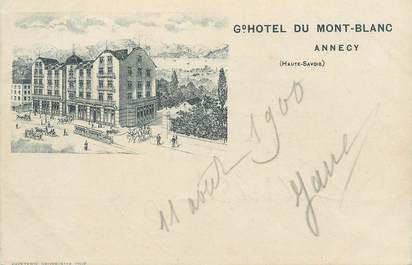 Gᴅ HOTEL DU MONT-BLANC
ANNECY
(HAUTE-SAVOIE)
11 août 1900